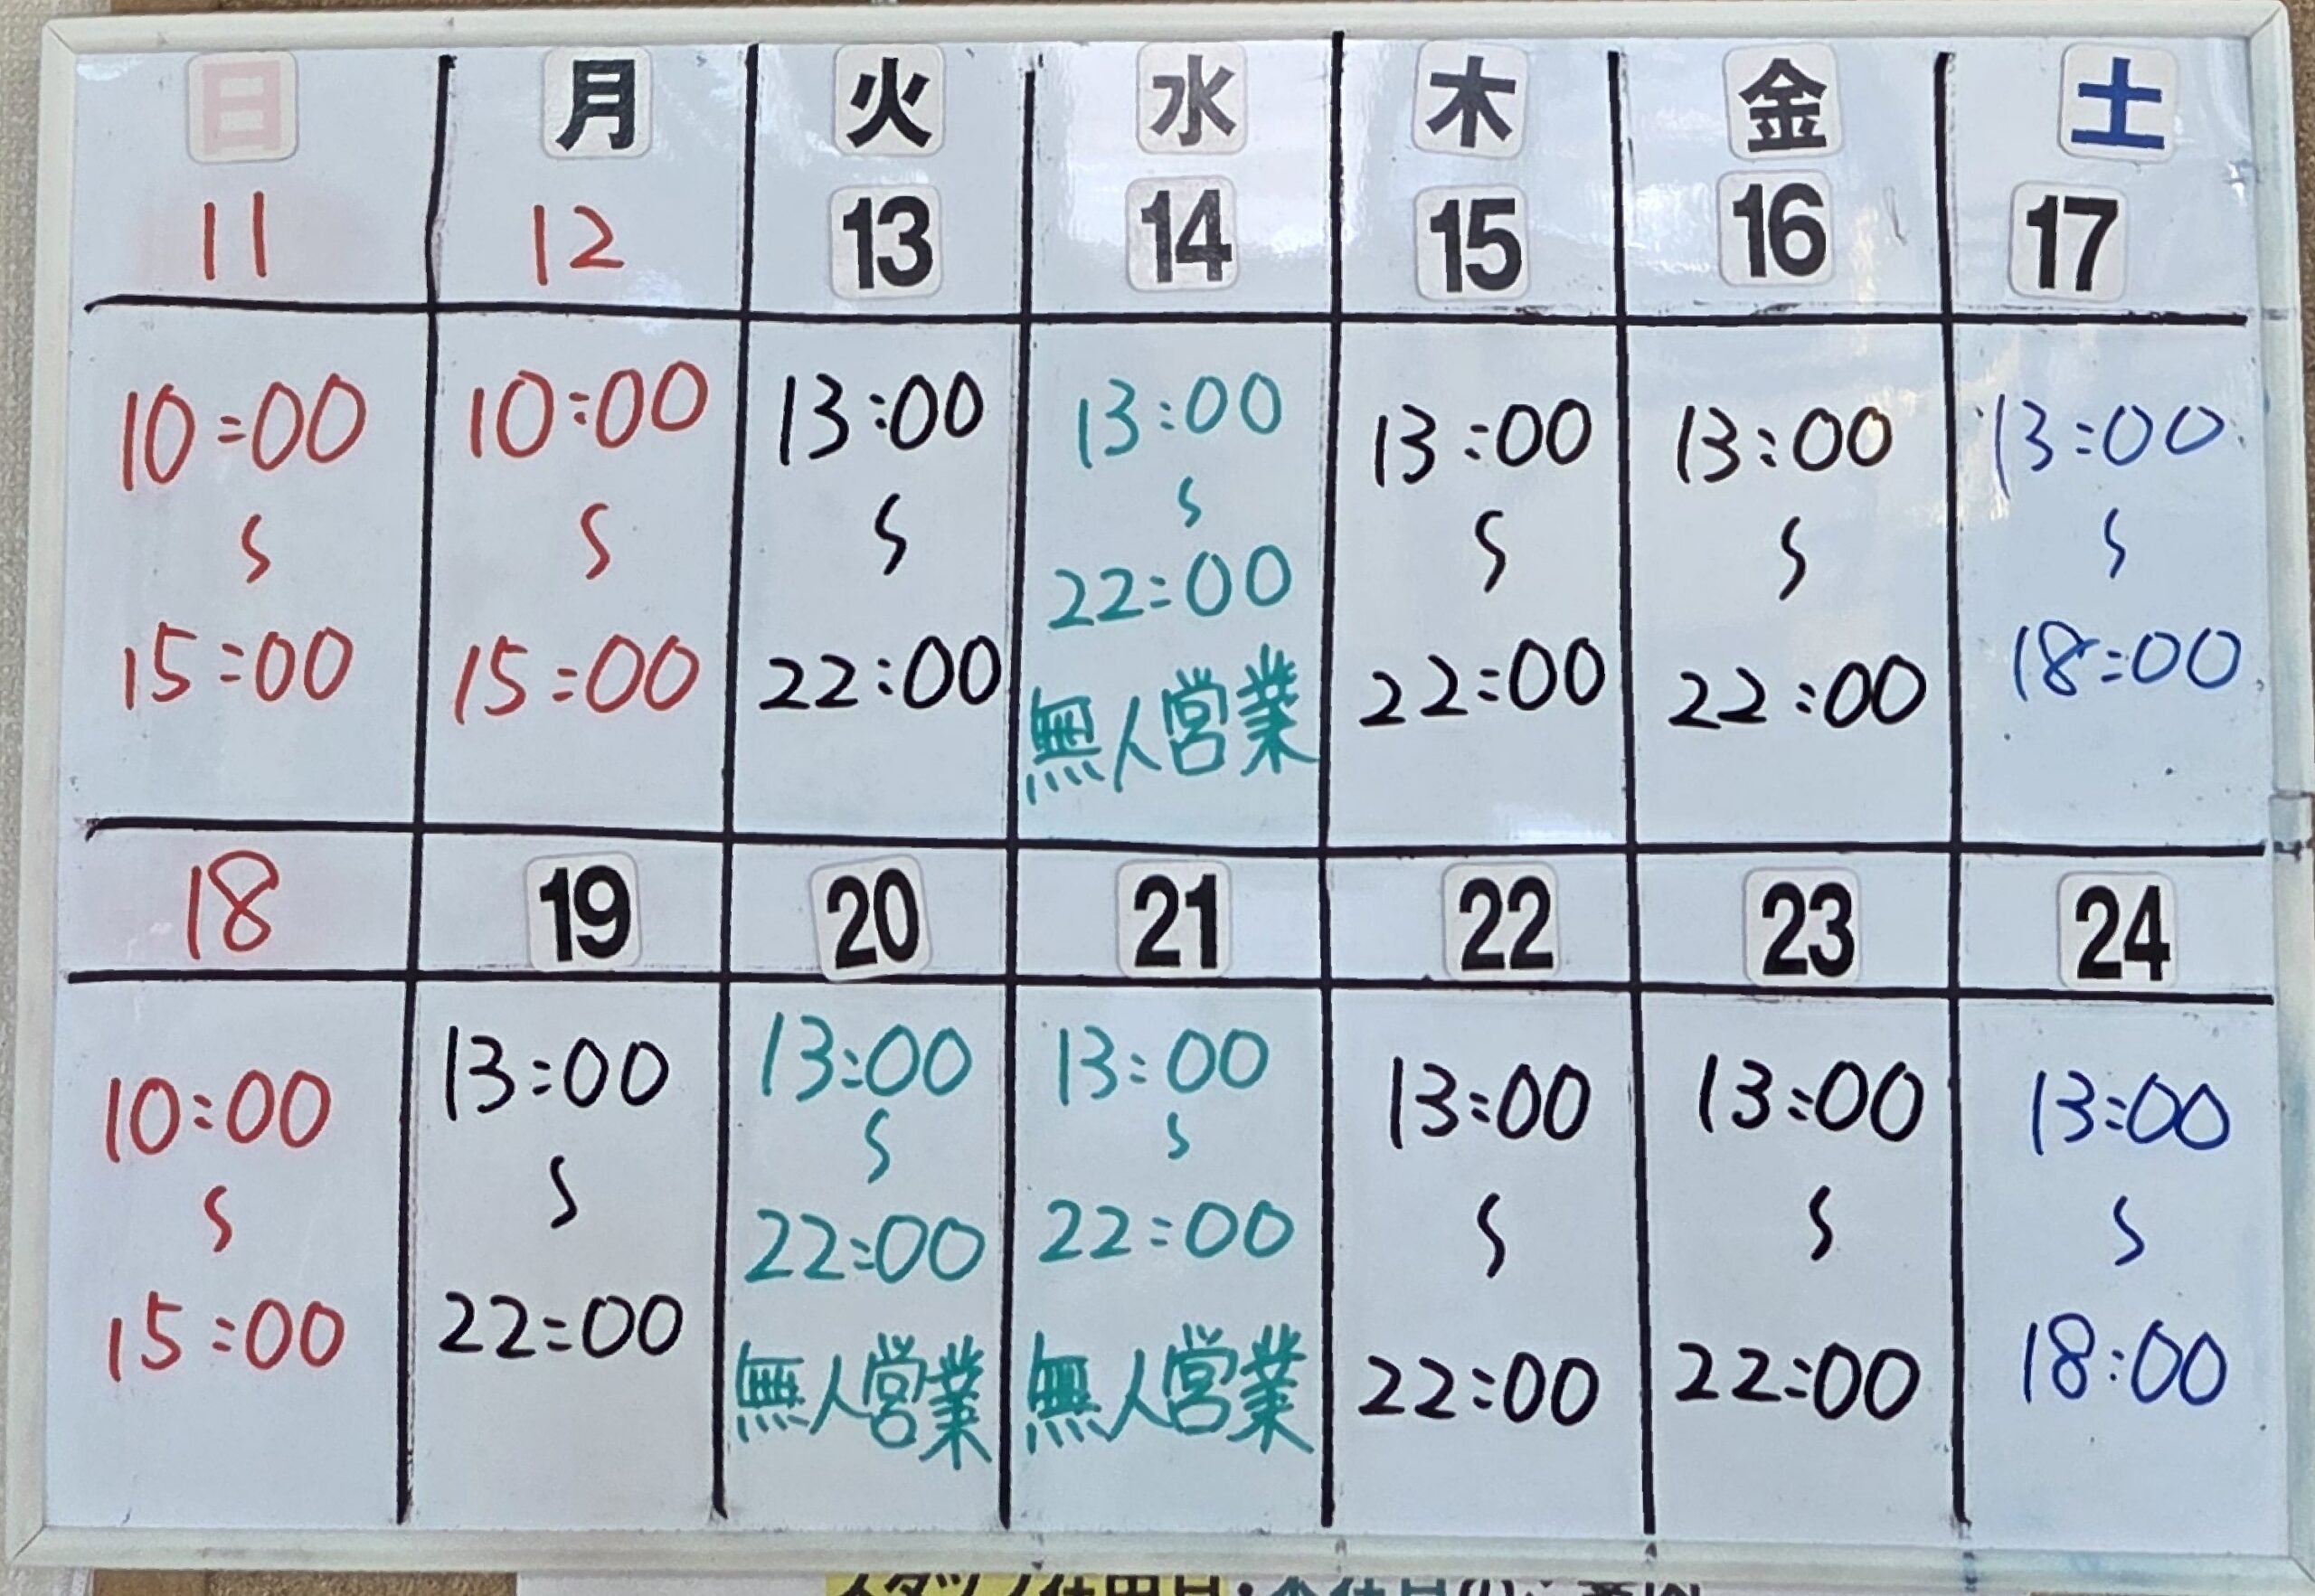 日 月 火 水 木 金 土
11 12 13 14 15 16 17
10:00 10:00 13:00 13:00 13:00 13:00 13:00
〜 〜 〜 〜 〜 〜 〜
15:00 15:00 22:00 22:00 22:00 22:00 18:00
無人営業
18 19 20 21 22 23 24
10:00 13:00 13:00 13:00 13:00 13:00 13:00
〜 〜 〜 〜 〜 〜 〜
15:00 22:00 22:00 22:00 22:00 22:00 18:00
無人営業 無人営業